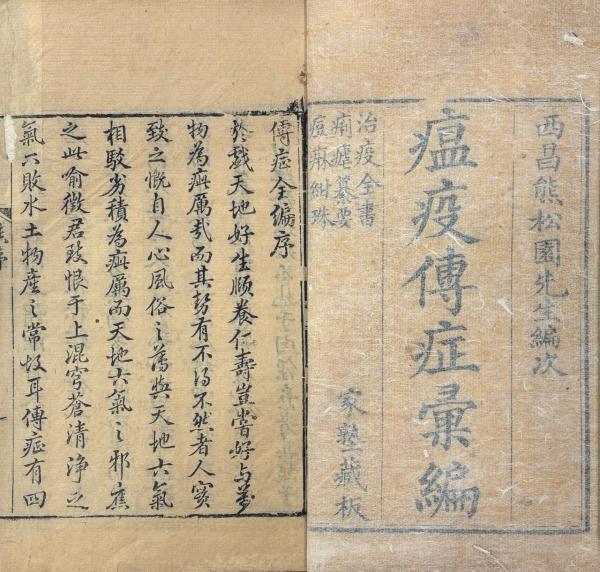 西昌熊松園先生編次
瘟疫傳症彙編
治疫全書
痢瘧纂要
痘麻紺珠
家塾藏板
傳症全編序
於戲天地好生順養仁壽豈嘗好与萬
物為疵厲哉而其勢有不得不然者人實
致之慨自人心風俗之與天地六氣
相駁劣積為疵厲而天地六氣之邪應
之此喻徵君致恨于上混穹蒼清淨之
氣下敗水土物產之常故耳傳症有四